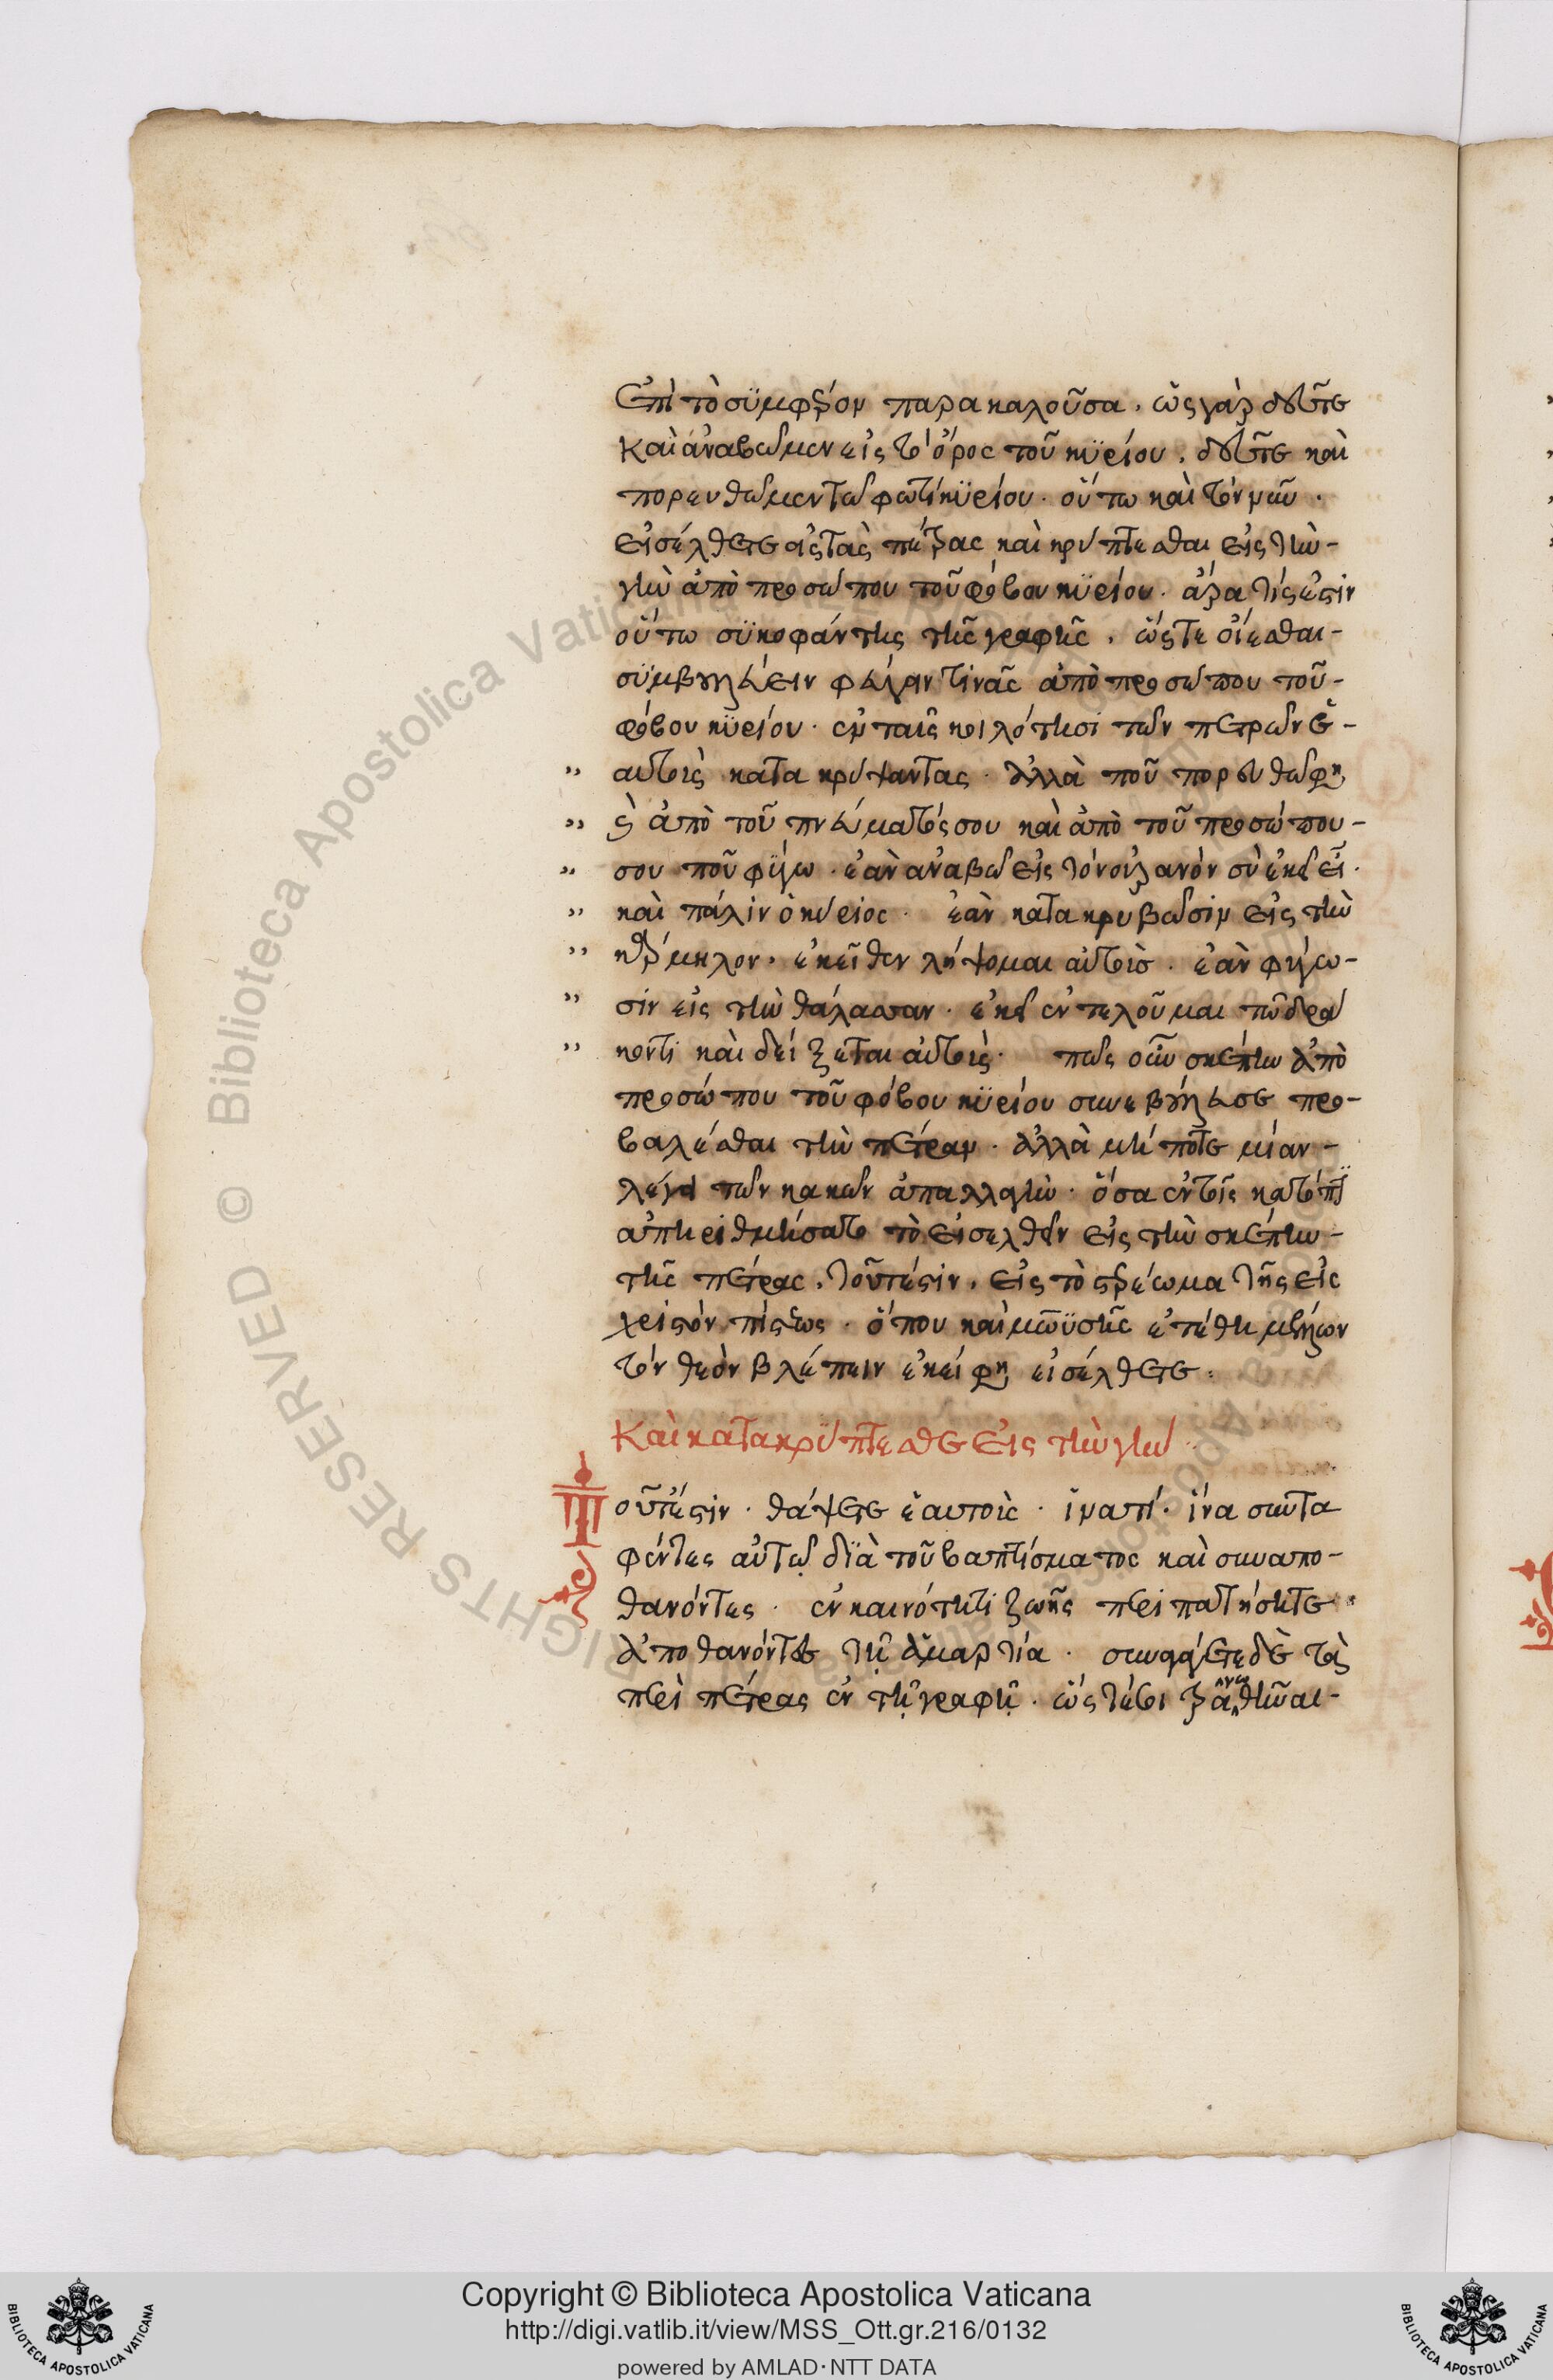 Ἐπὶ τὸ σϋμφέρον παρακαλοῦσα. ὡς γὰρ δεῦτε
καὶ ἀναβῶμεν εἰς τὸ ὄρος τοῦ κϋρίου. δεῦτε καὶ
πορευθῶμεν τῶ φωτὶ κϋρίου. οὕτω καὶ τὸ νῦν.
εἰσέλθετε εἰς τὰς πέτρας καὶ κρύπτεσθαι εἰς τὴν-
γῆν ἀπὸ προσώπου τοῦ φόβου κϋρίου. ἄρα τίς ἐστιν
οὕτω σϋκοφάντης τῆς γραφῆς, ὥστε οἴεσθαι-
σϋμβουλεύειν φεύγειν τινὰς ἀπὸ προσώπου τοῦ-
φόβου κϋρίου. ἐν ταῖς κοιλότησι τῶν πετρῶν ἑ-
αυτοὺς κατακρύψαντας. ἀλλὰ ποῦ πορευθῶ φησι
ἀπὸ τοῦ πνεύματός σου καὶ ἀπὸ τοῦ προσώπου-
σου ποῦ φύγω. ἐὰν ἀναβῶ εἰς τὸν οὐρανὸν σὺ ἐκεῖ εἶ.
καὶ πάλιν ὁ κύριος. ἐὰν κατακρυβῶσιν εἰς τὴν
κάρμηλον, ἐκεῖθεν λήψομαι αὐτούς. ἐὰν φύγω-
σιν εἰς τὴν θάλασσαν. ἐκεῖ ἐντελοῦμαι τῶ δρά
κοντι καὶ δείξεται αὐτούς. πῶς οὖν σκέπην ἀπὸ
προσώπου τοῦ φόβου κϋρίου συνεβούλευσε προ-
βαλέσθαι τὴν πέτραν. ἀλλὰ μήποτε μίαν-
λέγει τῶν κακῶν ἀπαλλαγὴν. ὅσα ἐν τοῖς κατόπϊ
ἀπηριθμήσατο τὸ εἰσελθεῖν εἰς τὴν σκέπην-
τῆς πέτρας, τουτέστιν, εἰς τὸ στερέωμα τῆς εἰς
χριστὸν πίστεως. ὅπου καὶ μωϋσῆς ἐτέθη μέλλων
τὸν θεὸν βλέπειν ἐκεῖ φησι εἰσέλθετε.
Καὶ κατακρύπτεσθε εἰς τὴν γῆν
Τουτέστιν. θάψετε ἑαυτοὺς. ἱνατί. ἵνα συντα
φέντες αὐτῷ διὰ τοῦ βαπτίσματος καὶ συναπο-
θανόντες. ἐν καινότητι ζωῆς περιπατήσητε
ἀποθανόντες τῇ ἁμαρτία. συναγάγετε δὲ τὰ
περὶ πέτρας ἐν τῇ γραφῇ. ὥστε σοι τρανωθῆναι-
Copyright © Biblioteca Apostolica Vaticana
http://digi.vatlib.it/view/MSS_Ott.gr.216/0132
powered by AMLAD·NTT DATA
BIBLIOTECA APOSTOLICA VATICANA
BIBLIOTECA APOSTOLICA VATICANA
© Biblioteca Apostolica Vaticana ALL RIGHTS RESERVED